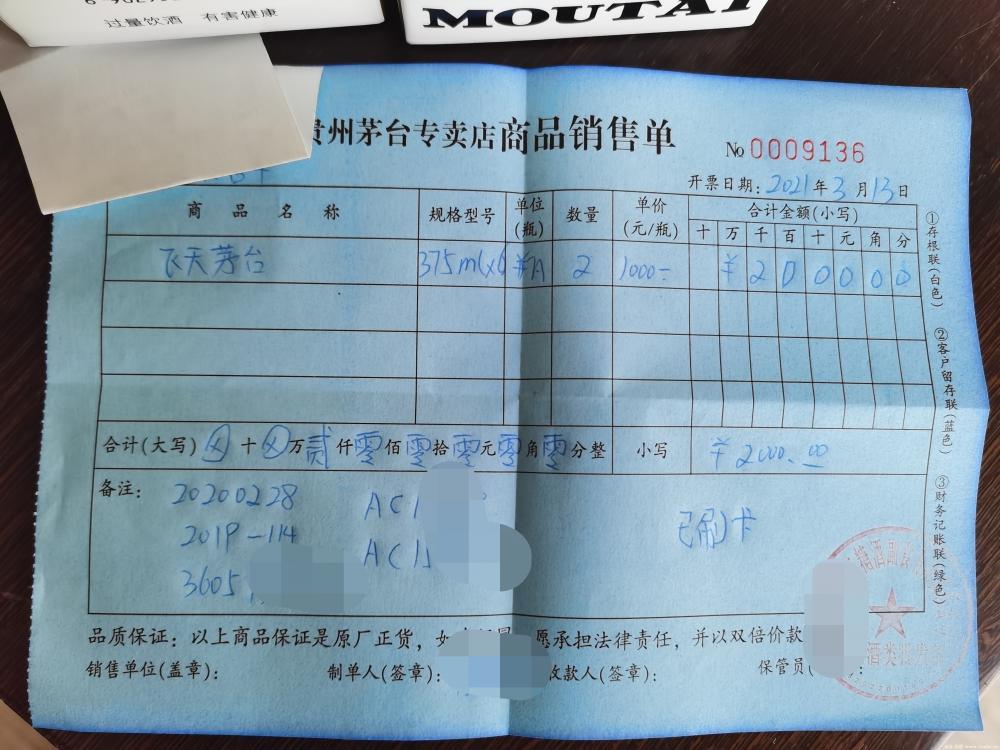 过量饮酒 有害健康
MOUTAI
贵州茅台专卖店商品销售单
No 0009136
开票日期: 2021年3月13日
商品名称 规格型号 单位(瓶) 数量 单价(元/瓶) 合计金额(小写)
十 万 千 百 十 元 角 分
飞天茅台 375ml×6 2 1000- ¥ 2 0 0 0 0 0
合计(大写) ⊗ 十 ⊗ 万 贰 仟 零 佰 零 拾 零 元 零 角 零 分整 小写 ¥ 2000.00
备注: 20200228 AC1
2019-114 AC1
3605
已刷卡
品质保证: 以上商品保证是原厂正货, 如 愿承担法律责任, 并以双倍价款
销售单位(盖章): 制单人(签章): 收款人(签章): 保管员(
①存根联(白色)
②客户留存联(蓝色)
③财务记账联(绿色)